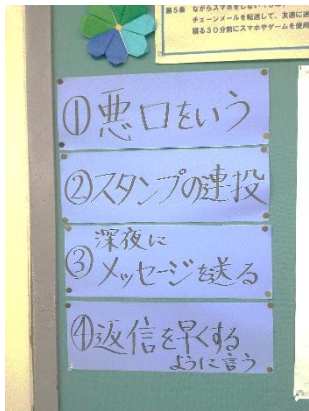 第5条 ながらスマホをしない
チェーンメールを転送して、友達に迷
寝る30分前にスマホやゲームを使用
①悪口をいう
②スタンプの連投
③深夜に
メッセージを送る
④返信を早くする
ように言う